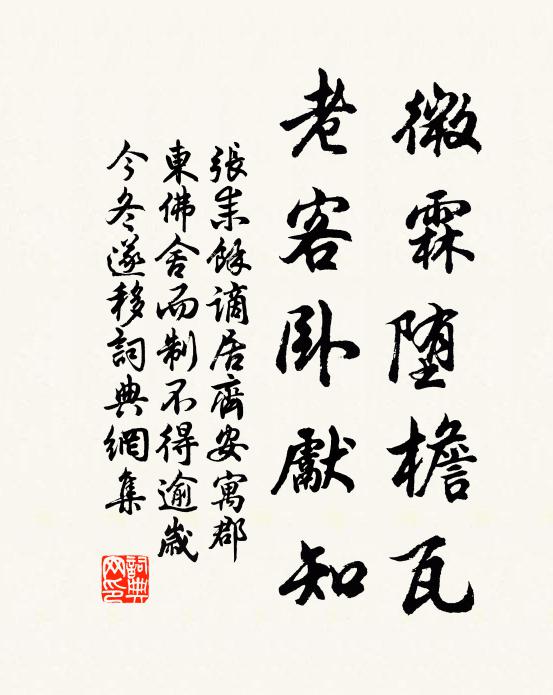 微霖墮檐瓦
老客臥獻知
張耒餘謫居齊安寓郡
東佛舍而制不得逾歲
今冬遂移詞典網集
詞典网印